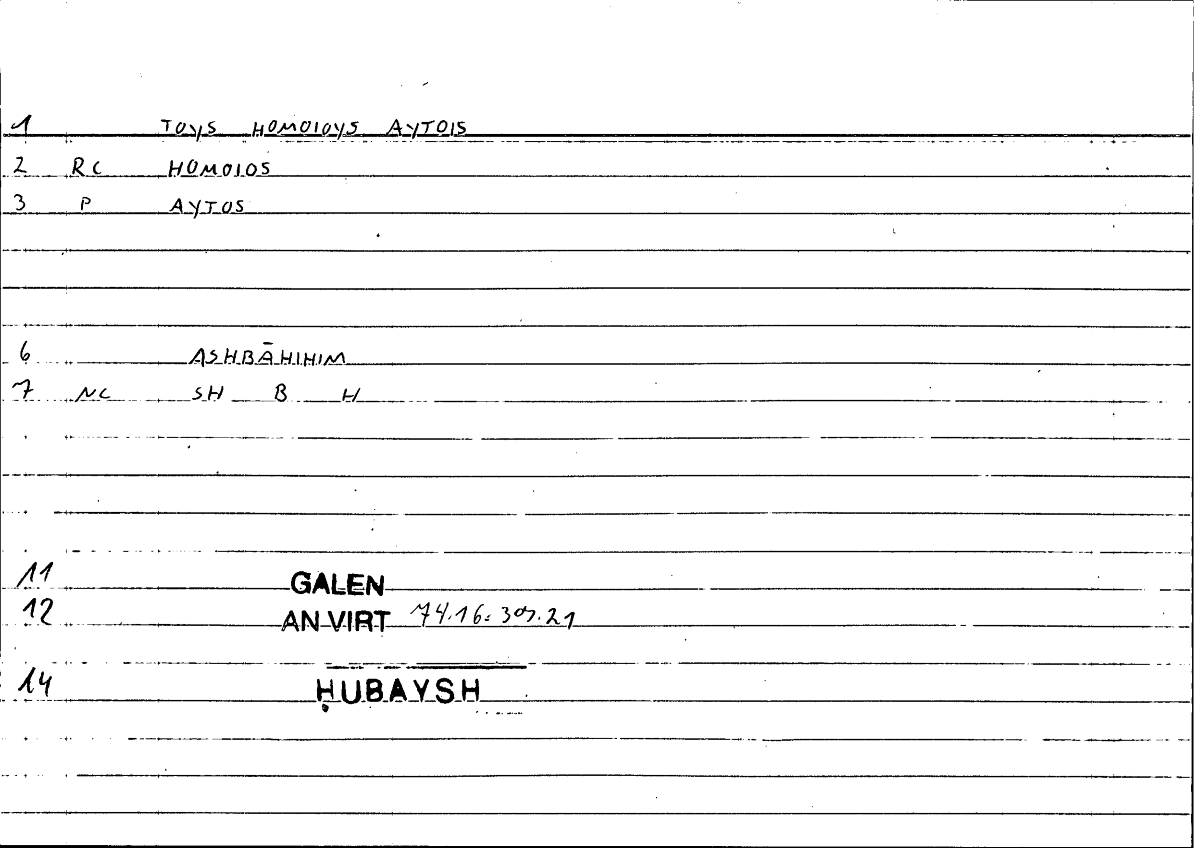 1 TOYS HOMOIOYS AYTOIS
2 RC HOMOIOS
3 P AYTOS
6 ASHBĀHIHIM
7 NC SH B H
11 GALEN
12 AN VIRT 74.16: 309.21
14 ḤUBAYSH